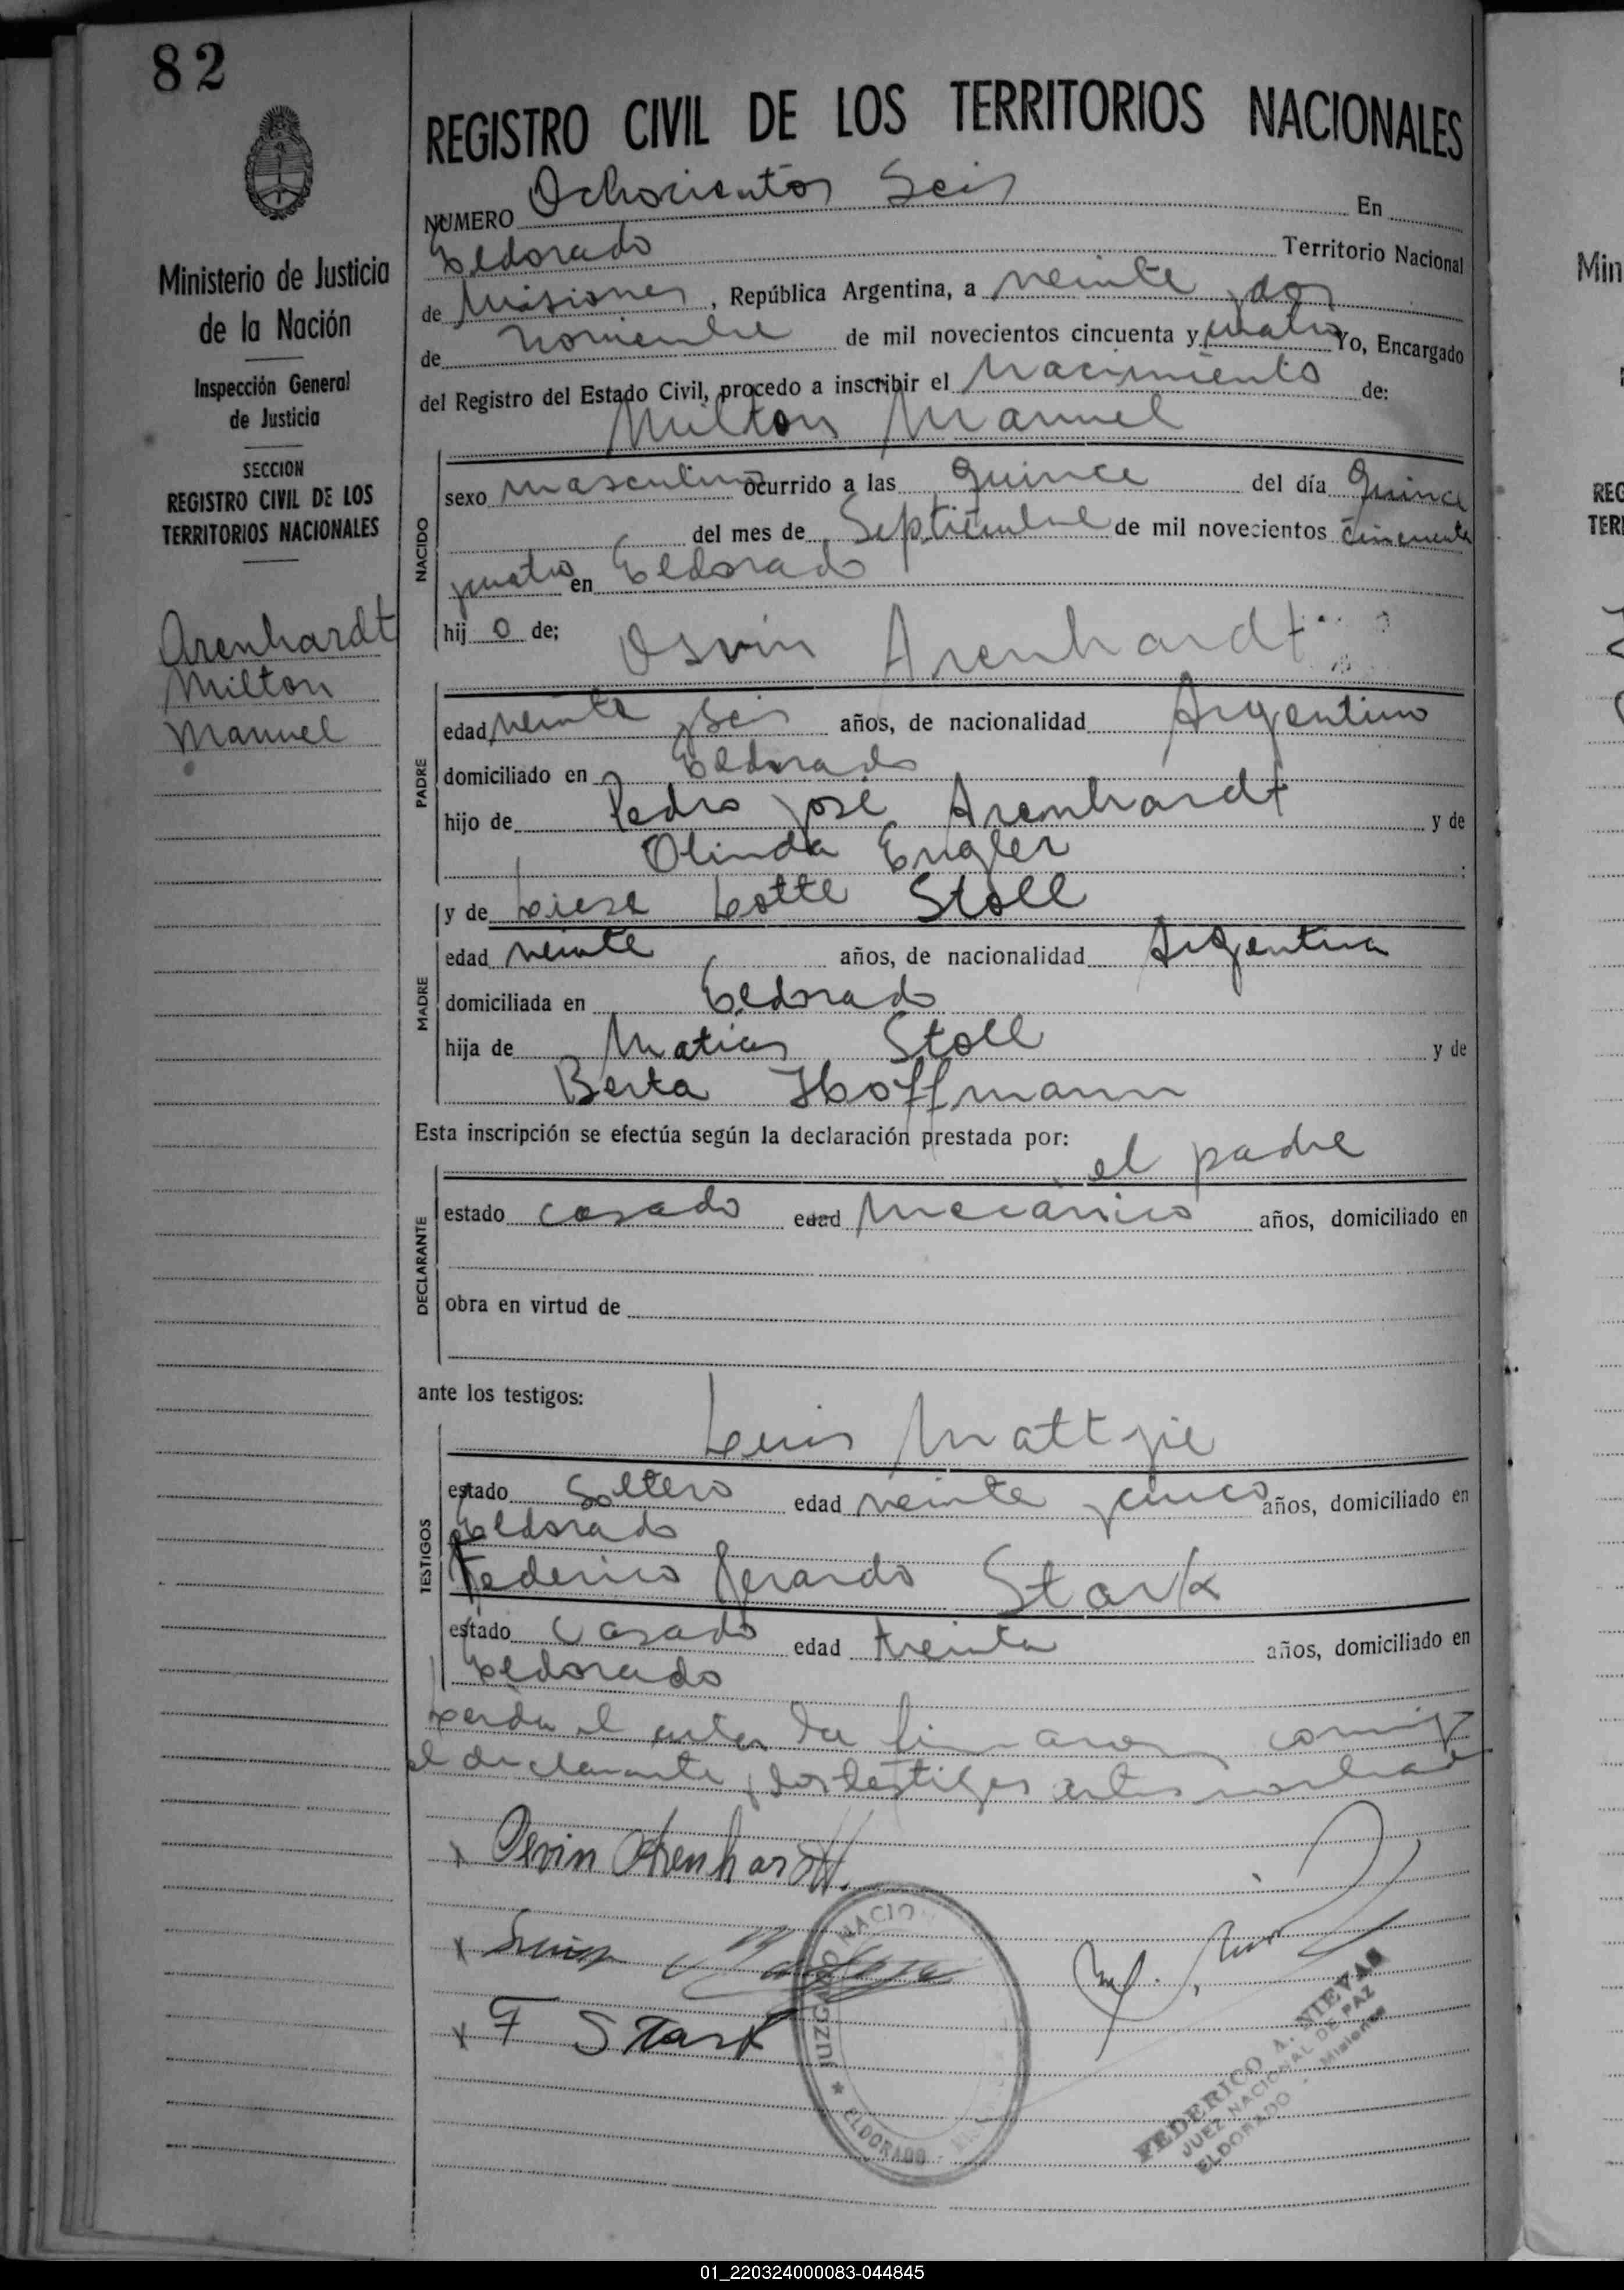 82
REGISTRO CIVIL DE LOS TERRITORIOS NACIONALES
Ministerio de Justicia
de la Nación
Inspección General
de Justicia
SECCION
REGISTRO CIVIL DE LOS
TERRITORIOS NACIONALES
Arenhardt
Milton
Manuel
NUMERO Ochocientos Seis En
Eldorado Territorio Nacional
de Misiones, República Argentina, a veinte y dos
de noviembre de mil novecientos cincuenta y cuatro Yo, Encargado
del Registro del Estado Civil, procedo a inscribir el Nacimiento de:
Milton Manuel
NACIDO
sexo masculino ocurrido a las quince del día quince
del mes de Septiembre de mil novecientos cincuenta
y cuatro en Eldorado
hij o de; Osvin Arenhardt
PADRE
edad veinte y seis años, de nacionalidad Argentino
domiciliado en Eldorado
hijo de Pedro José Arenhardt y de
Olinda Engler ;
y de Liese Lotte Stoll
MADRE
edad veinte años, de nacionalidad Argentina
domiciliada en Eldorado
hija de Matias Stoll y de
Berta Hoffmann
Esta inscripción se efectúa según la declaración prestada por:
el padre
DECLARANTE
estado casado edad mecánico años, domiciliado en
obra en virtud de
ante los testigos:
Luis Mattjie
TESTIGOS
estado soltero edad veinte y cinco años, domiciliado en
Eldorado
Federico Gerardo Stark
estado casado edad treinta años, domiciliado en
Eldorado
Leida el acta la firmaron conmigo
el declarante y los testigos antes nombrados
x Osvin Arenhardt.
x Luis
x F Stark
JUZGADO NACIO
★ ELDORADO -
FEDERICO A. NIEVAS
JUEZ NACIONAL DE PAZ
ELDORADO - Misiones
Min
REG
TER
01_220324000083-044845